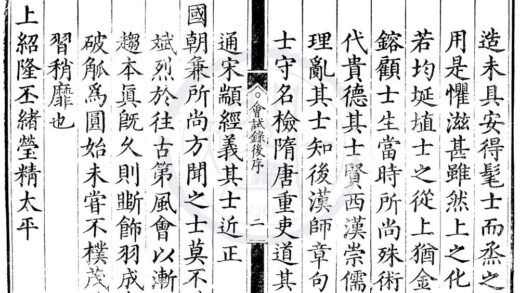 造未具安得髦士而烝之
用是懼滋甚雖然上之化
若均埏埴士之從上猶金
鎔顧士生當時所尚殊術
代貴德其士賢西漢崇儒
理亂其士知後漢師章句
士守名檢隋唐重吏道其
會試錄後序 二
通宋顓經義其士近正
國朝兼所尚方聞之士莫不
斌烈於往古第風會以漸
趨本眞旣久則斲飾羽成
破觚爲圓始未嘗不樸茂
習稍靡也
上紹隆丕緒瑩精太平